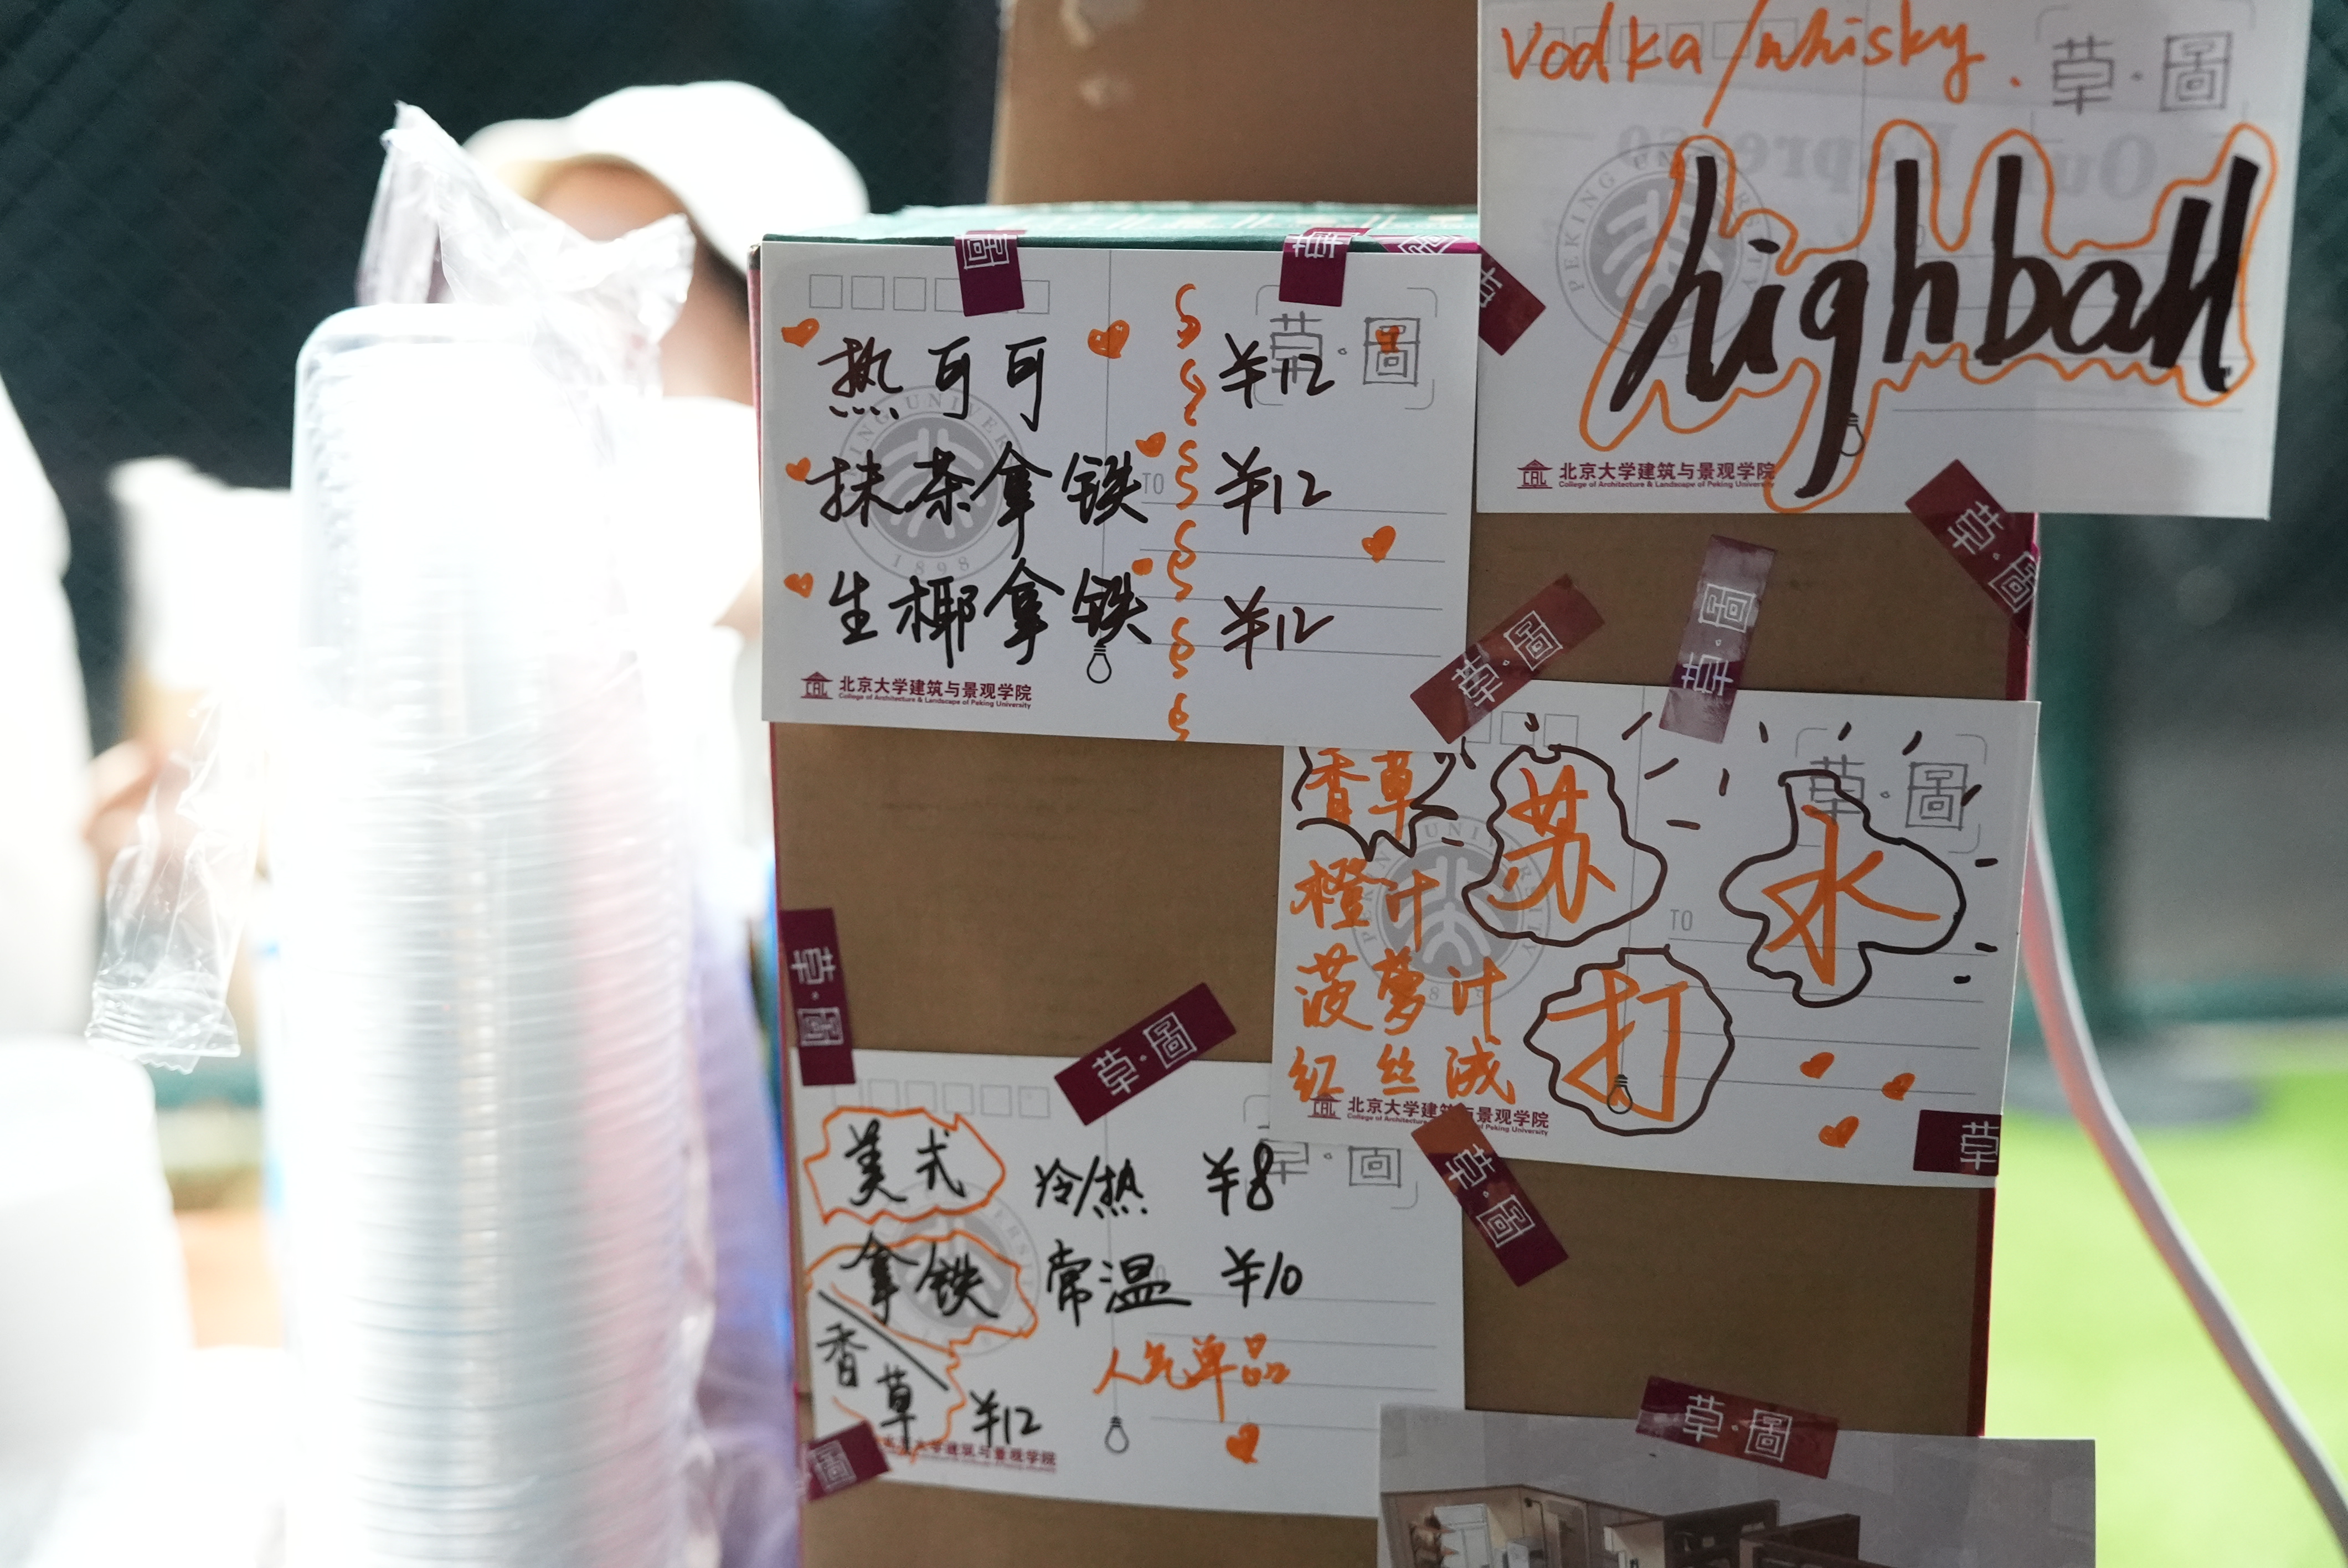 热可可 ¥12
抹茶拿铁 ¥12
生椰拿铁 ¥12
TO
PEKING UNIVERSITY
1898
北京大学建筑与景观学院
College of Architecture & Landscape of Peking University
草·圖
vodka/whisky.
highball
草·圖
PEKING UNIVERSITY
北京大学建筑与景观学院
College of Architecture & Landscape of Peking University
香草
橙汁
菠萝汁
红丝绒
苏打水
草·圖
TO
北京大学建筑与景观学院
College of Architecture & Landscape of Peking University
美式 冷/热 ¥8
拿铁 常温 ¥10
香草 ¥12
人气单品
草·圖
草·圖
草·圖
草·圖
草·圖
草·圖
草·圖
草
圖